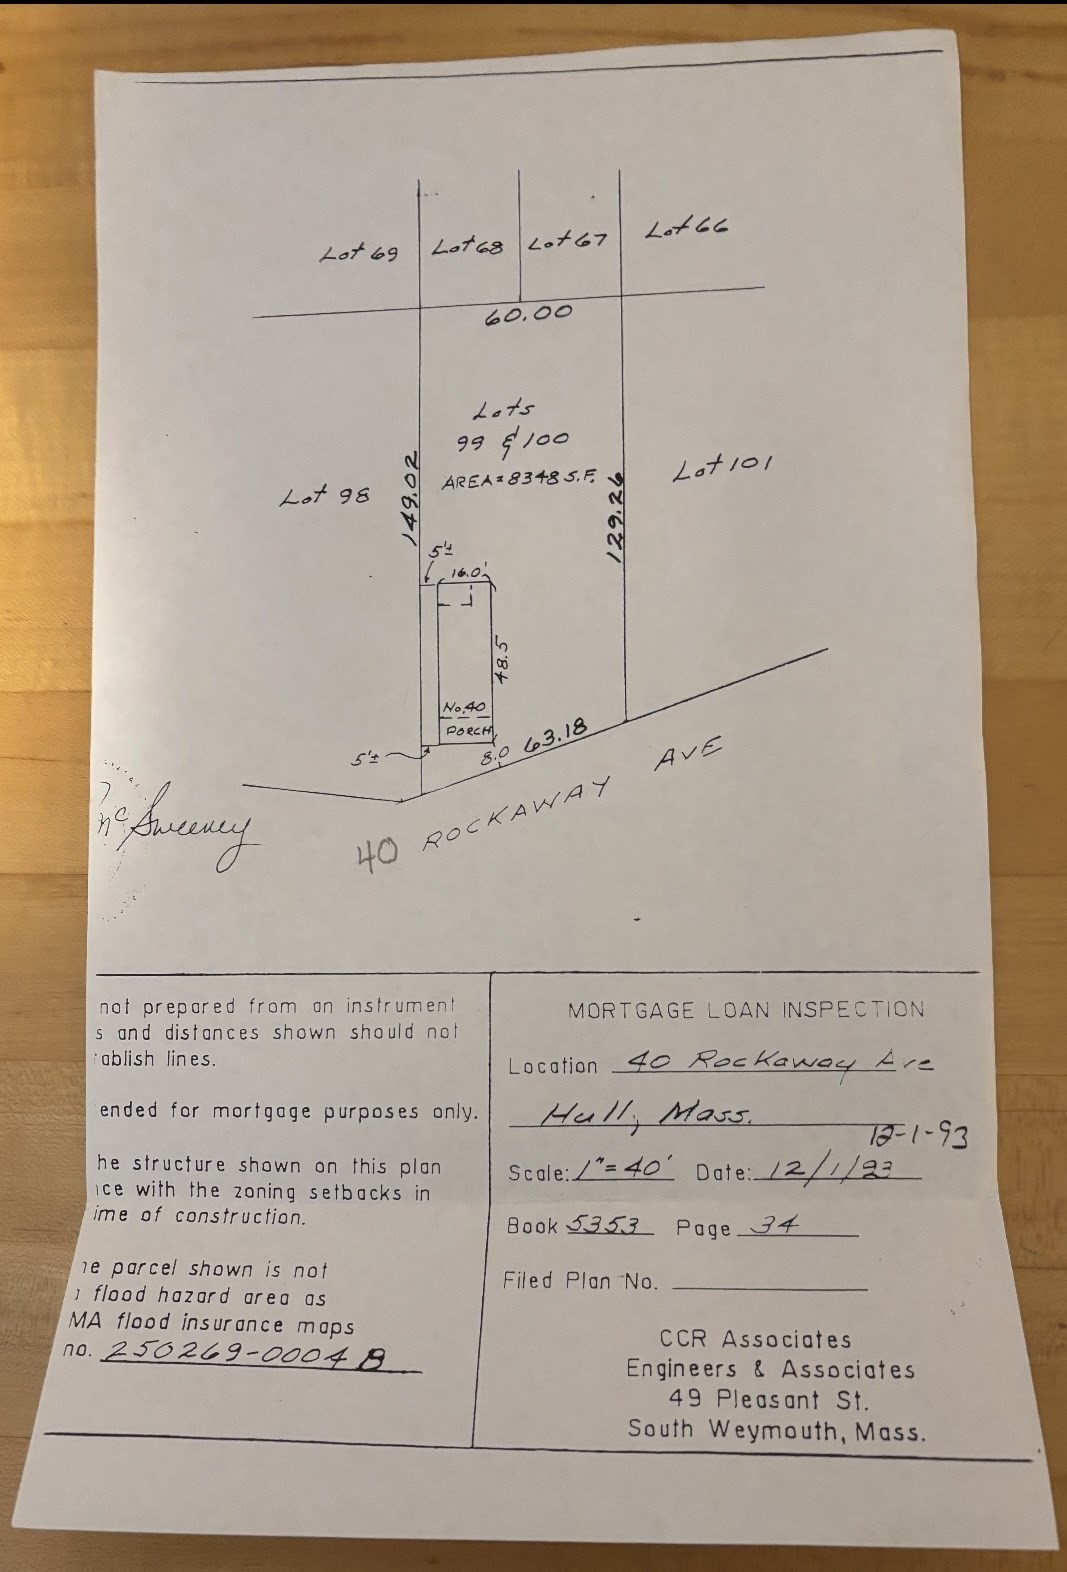 Lot 69 Lot 68 Lot 67 Lot 66
60.00
Lots
99 & 100
AREA=8348 S.F.
Lot 98
Lot 101
149.02
129.26
5'±
16.0'
48.5
No.40
PORCH
5'±
8.0
63.18
40 ROCKAWAY AVE
McSweeney
not prepared from an instrument
s and distances shown should not
ablish lines.
ended for mortgage purposes only.
he structure shown on this plan
ce with the zoning setbacks in
ime of construction.
e parcel shown is not
flood hazard area as
MA flood insurance maps
no. 250269-0004 B
MORTGAGE LOAN INSPECTION
Location 40 Rockaway Ave
Hull, Mass.
12-1-93
Scale: 1"=40' Date: 12/1/93
Book 5353 Page 34
Filed Plan No.
CCR Associates
Engineers & Associates
49 Pleasant St.
South Weymouth, Mass.